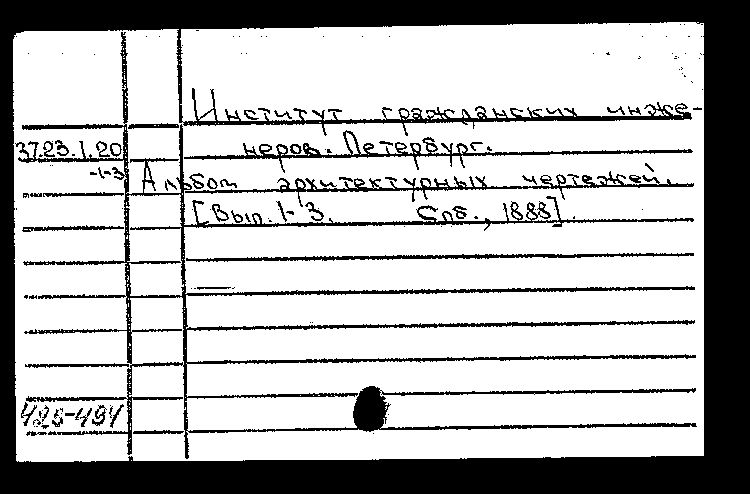 Институт гражданских инже-
37.23.1.20 неров. Петербург.
-1-3 Альбом архитектурных чертежей.
[Вып. 1-3. Спб., 1888]